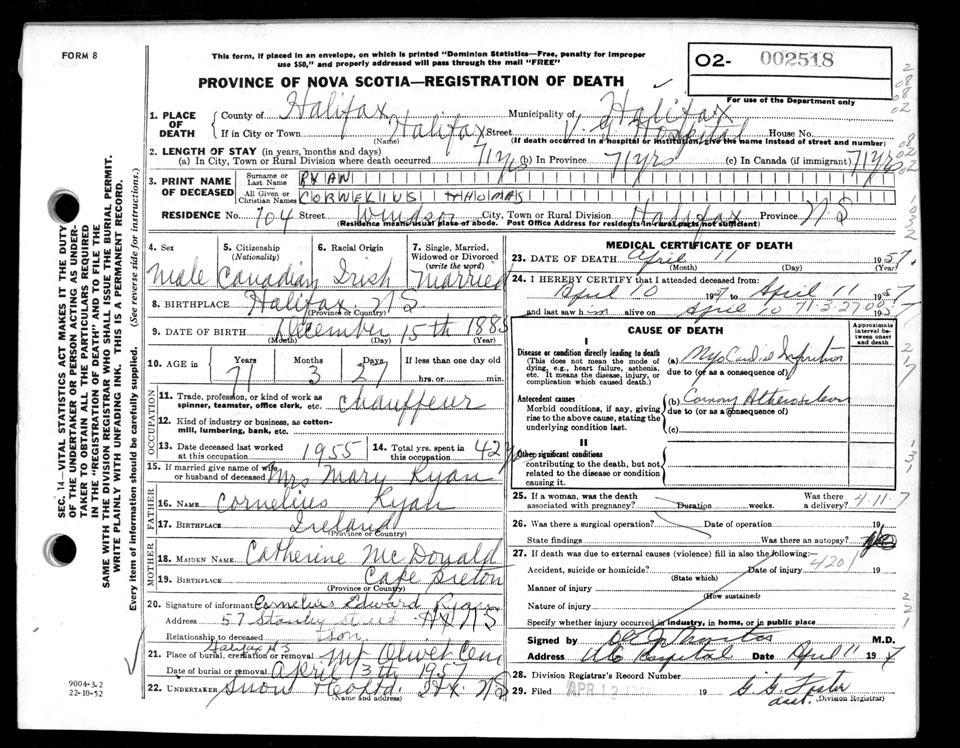 FORM 8
This form, if placed in an envelope, on which is printed "Dominion Statistics—Free, penalty for improper
use $50," and properly addressed will pass through the mail "FREE"
O2- 002518
For use of the Department only
PROVINCE OF NOVA SCOTIA—REGISTRATION OF DEATH
1. PLACE OF DEATH
County of Halifax Municipality of Halifax
If in City or Town Halifax Street V. G Hospital House No.
(Name) (If death occurred in a hospital or institution, give the name instead of street and number)
2. LENGTH OF STAY (in years, months and days)
(a) In City, Town or Rural Division where death occurred 71 yrs (b) In Province 71 yrs (c) In Canada (if immigrant) 71 yrs
3. PRINT NAME OF DECEASED
Surname or Last Name RYAN
All Given or Christian Names CORNELIUS THOMAS
RESIDENCE No. 704 Street Windsor City, Town or Rural Division Halifax Province NS
(Residence means usual place of abode. Post Office Address for residents in rural parts not sufficient)
4. Sex 5. Citizenship (Nationality) 6. Racial Origin 7. Single, Married, Widowed or Divorced (write the word)
Male Canadian Irish Married
8. BIRTHPLACE Halifax NS
(Province or Country)
9. DATE OF BIRTH December 15th 1885
(Month) (Day) (Year)
10. AGE in Years Months Days If less than one day old
71 3 27 hrs. or min.
OCCUPATION
11. Trade, profession, or kind of work as spinner, teamster, office clerk, etc. Chauffeur
12. Kind of industry or business, as cotton-mill, lumbering, bank, etc.
13. Date deceased last worked at this occupation 1955 14. Total yrs. spent in this occupation 42 y
15. If married give name of wife or husband of deceased Mrs Mary Ryan
FATHER
16. NAME Cornelius Ryan
17. BIRTHPLACE Ireland
(Province or Country)
MOTHER
18. MAIDEN NAME Catherine McDonald
19. BIRTHPLACE Cape Breton
(Province or Country)
20. Signature of informant Cornelius Edward Ryan
Address 57 Stanley Street Hx NS
Relationship to deceased Son
Halifax N.S
21. Place of burial, cremation or removal Mt Olivet Cem
Date of burial or removal April 13th 1957
22. UNDERTAKER Snow & Co Ltd. Hx. NS
(Name and address)
MEDICAL CERTIFICATE OF DEATH
23. DATE OF DEATH April 11 1957.
(Month) (Day) (Year)
24. I HEREBY CERTIFY that I attended deceased from:
April 10 1957 to April 11 1957
and last saw h im alive on April 10 1957
71-3-27 00
CAUSE OF DEATH
Approximate interval between onset and death
I
Disease or condition directly leading to death
(This does not mean the mode of dying, e.g., heart failure, asthenia, etc. It means the disease, injury, or complication which caused death.)
(a) Myocardial Infarction
due to (or as a consequence of)
Antecedent causes
Morbid conditions, if any, giving rise to the above cause, stating the underlying condition last.
(b) Coronary Atherosclerosis
due to (or as a consequence of)
(c)
II
Other significant conditions
contributing to the death, but not related to the disease or condition causing it.
25. If a woman, was the death associated with pregnancy? Duration weeks. Was there a delivery? 4-11-7
26. Was there a surgical operation? Date of operation 19
State findings Was there an autopsy?
27. If death was due to external causes (violence) fill in also the following:
Accident, suicide or homicide? Date of injury 19
4201
(State which)
Manner of injury
(How sustained)
Nature of injury
Specify whether injury occurred in industry, in home, or in public place
Signed by M.D.
Address VG Hospital Date April 11 1957
28. Division Registrar's Record Number
29. Filed APR 12 19 G. G. Foster
asst. (Division Registrar)
SEC. 14—VITAL STATISTICS ACT MAKES IT THE DUTY
OF THE UNDERTAKER OR PERSON ACTING AS UNDER-
TAKER TO OBTAIN ALL THE PARTICULARS REQUIRED
IN THE "REGISTRATION OF DEATH" AND TO FILE THE
SAME WITH THE DIVISION REGISTRAR WHO SHALL ISSUE THE BURIAL PERMIT.
WRITE PLAINLY WITH UNFADING INK. THIS IS A PERMANENT RECORD.
Every item of information should be carefully supplied. (See reverse side for instructions.)
9004-3.2
22-10-52